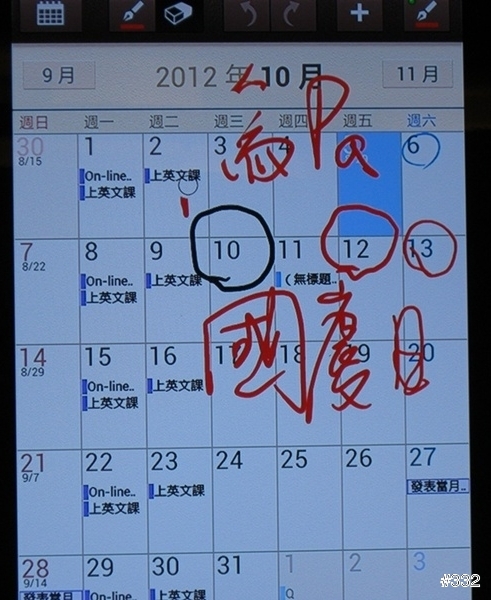 9月 2012 年 10 月 11月
週日 週一 週二 週三 週四 週五 週六
30 1 2 3 4 6
8/15 On-line.. 上英文課
上英文課
Pa
7 8 9 10 11 12 13
8/22 On-line.. 上英文課 (無標題..
上英文課
國慶日
14 15 16 17 18 19 20
8/29 On-line.. 上英文課
上英文課
21 22 23 24 25 26 27
9/7 On-line.. 上英文課 發表當月..
上英文課
28 29 30 31 1 2 3
9/14 On-line.. 上英文課 Q
發表當月
#332